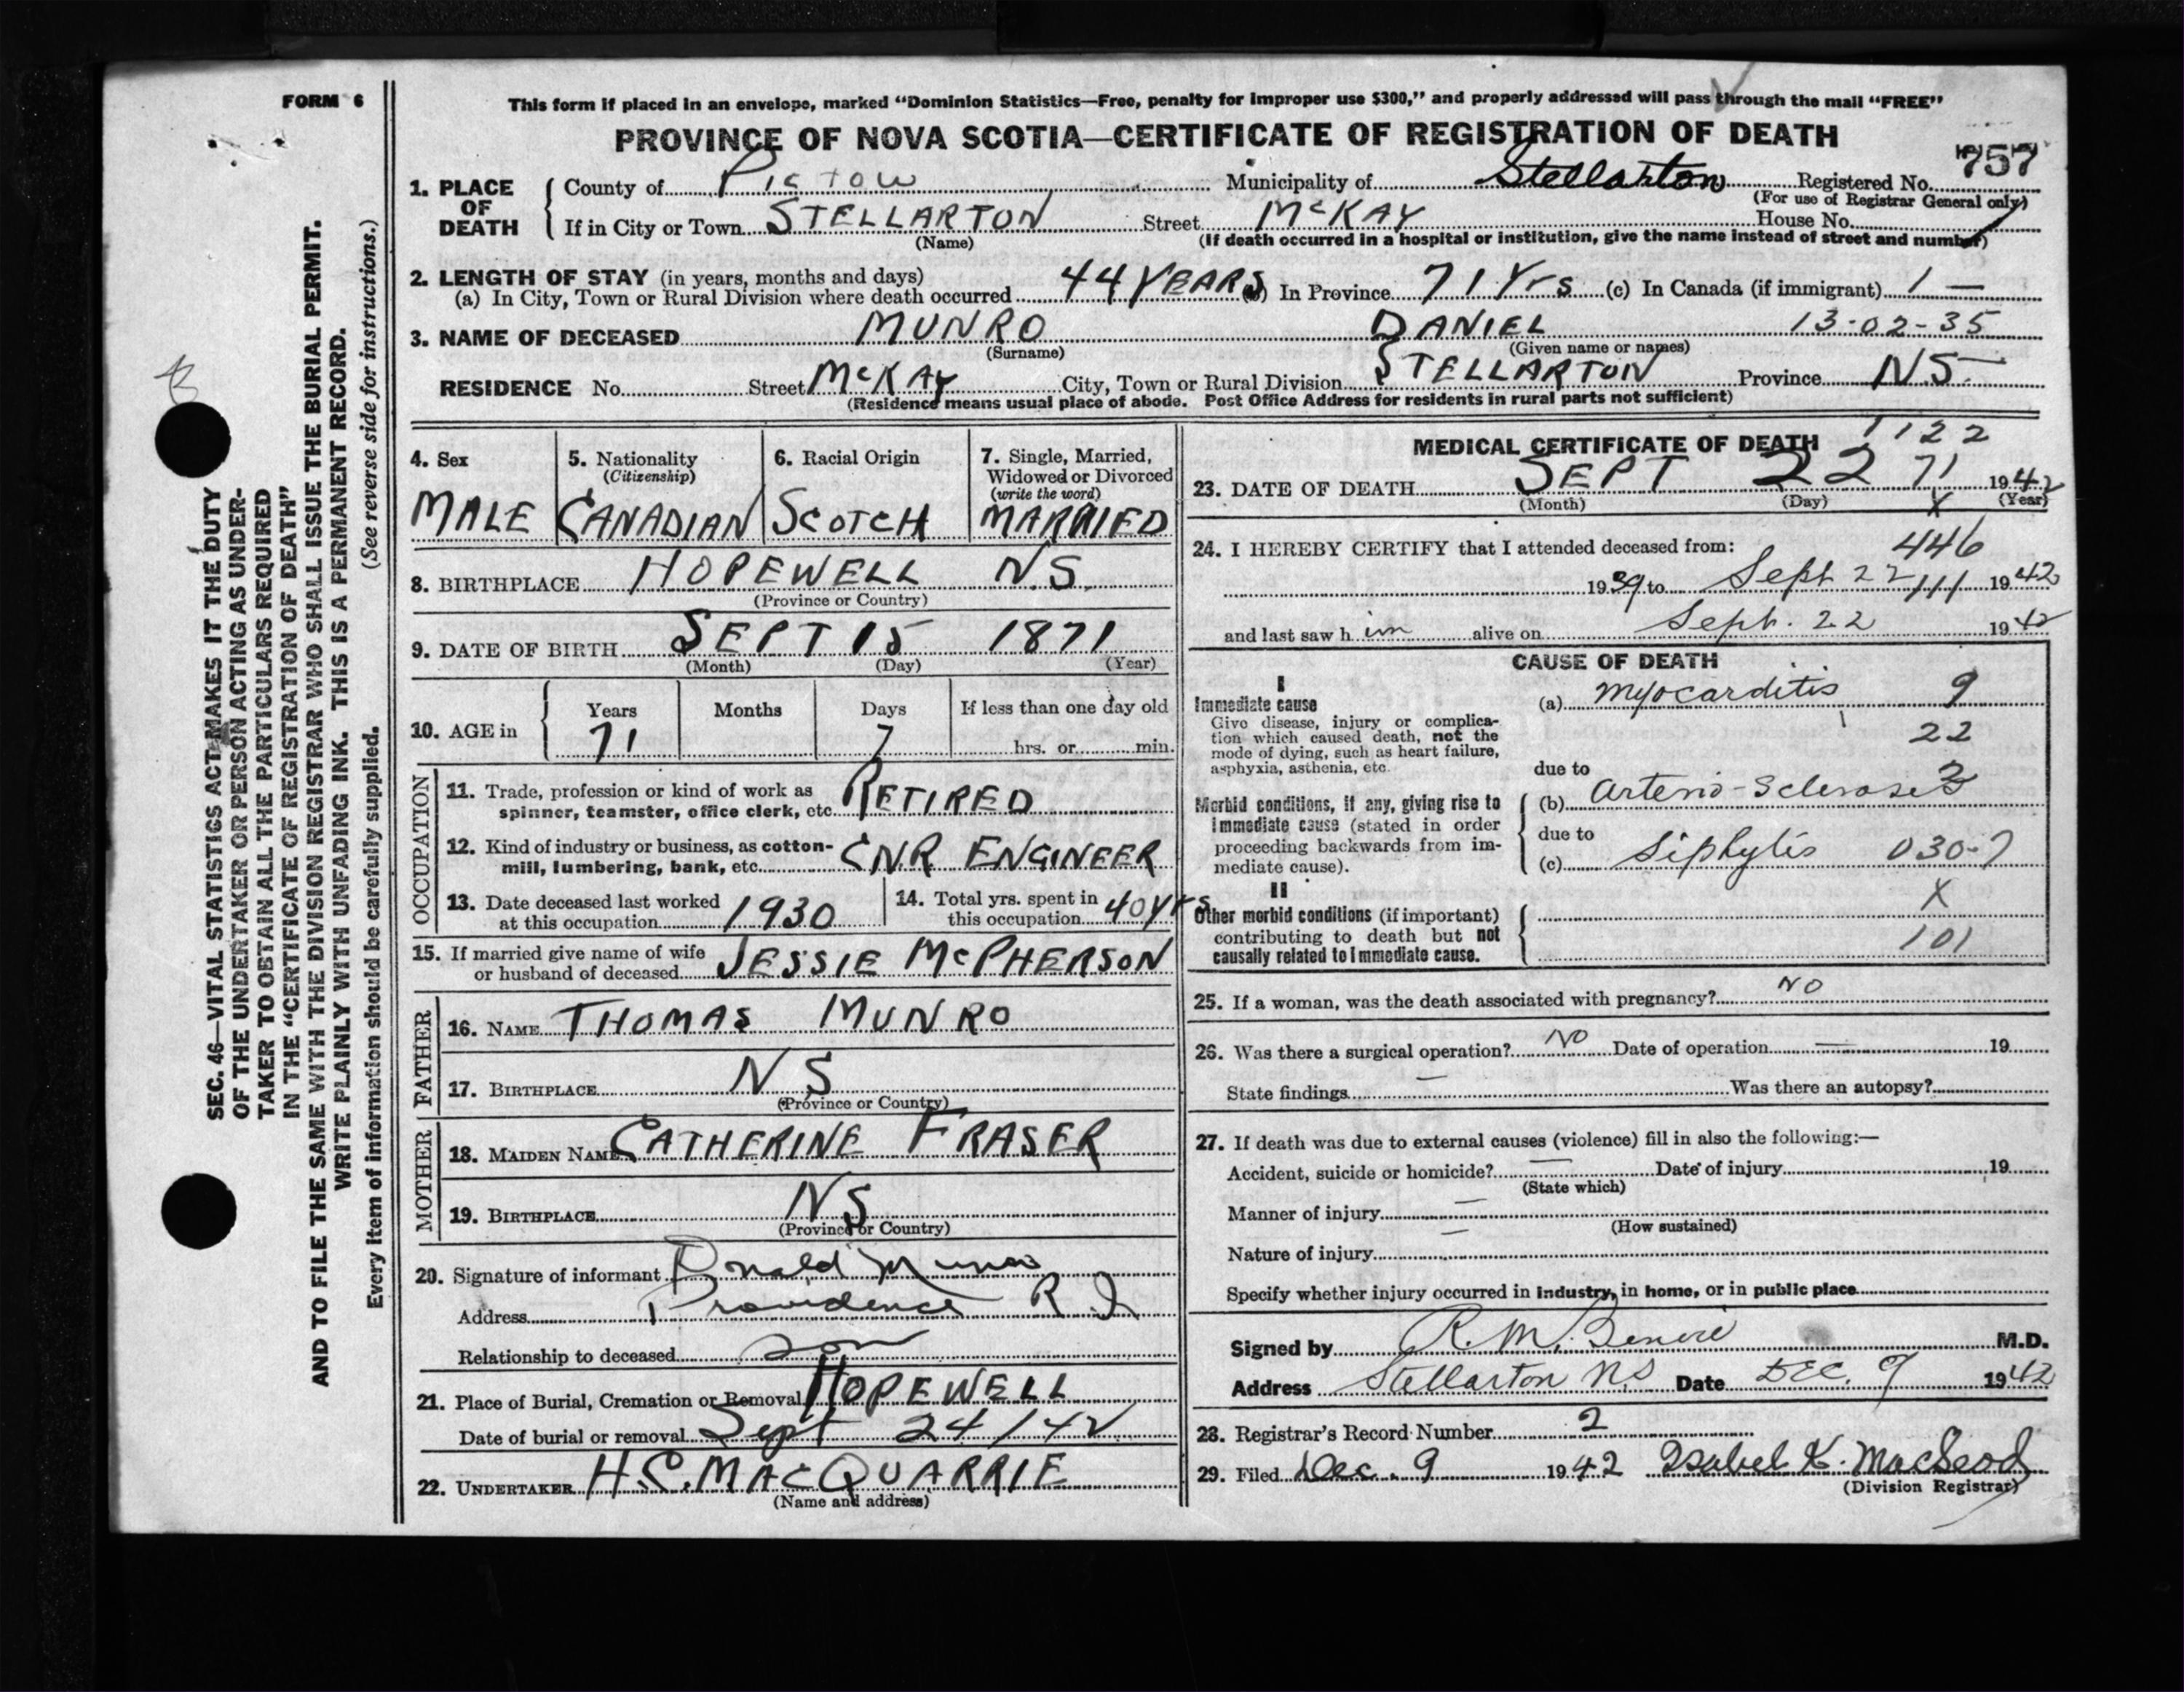 FORM 6
This form if placed in an envelope, marked "Dominion Statistics—Free, penalty for improper use $300," and properly addressed will pass through the mail "FREE"
PROVINCE OF NOVA SCOTIA—CERTIFICATE OF REGISTRATION OF DEATH
757
1. PLACE OF DEATH County of Pictou Municipality of Stellarton Registered No.
(For use of Registrar General only)
If in City or Town STELLARTON Street McKAY House No.
(Name) (If death occurred in a hospital or institution, give the name instead of street and number)
2. LENGTH OF STAY (in years, months and days)
(a) In City, Town or Rural Division where death occurred 44 YEARS (b) In Province 71 Yrs (c) In Canada (if immigrant) 1 —
3. NAME OF DECEASED MUNRO DANIEL 13-02-35
(Surname) (Given name or names)
RESIDENCE No. Street McKAY City, Town or Rural Division STELLARTON Province NS
(Residence means usual place of abode. Post Office Address for residents in rural parts not sufficient)
4. Sex
MALE
5. Nationality
(Citizenship)
CANADIAN
6. Racial Origin
SCOTCH
7. Single, Married,
Widowed or Divorced
(write the word)
MARRIED
8. BIRTHPLACE HOPEWELL NS
(Province or Country)
9. DATE OF BIRTH SEPT 15 1871
(Month) (Day) (Year)
10. AGE in Years Months Days If less than one day old
71 7 hrs. or min.
OCCUPATION
11. Trade, profession or kind of work as
spinner, teamster, office clerk, etc. RETIRED
12. Kind of industry or business, as cotton-
mill, lumbering, bank, etc. CNR ENGINEER
13. Date deceased last worked
at this occupation 1930
14. Total yrs. spent in
this occupation 40 yrs
15. If married give name of wife
or husband of deceased JESSIE McPHERSON
FATHER
16. NAME THOMAS MUNRO
17. BIRTHPLACE NS
(Province or Country)
MOTHER
18. MAIDEN NAME CATHERINE FRASER
19. BIRTHPLACE NS
(Province or Country)
20. Signature of informant Donald Munro
Address Providence R I
Relationship to deceased son
21. Place of Burial, Cremation or Removal HOPEWELL
Date of burial or removal Sept 24/42
22. UNDERTAKER H.C. MACQUARRIE
(Name and address)
MEDICAL CERTIFICATE OF DEATH 1122
23. DATE OF DEATH SEPT 22 71 1942
(Month) (Day) X (Year)
24. I HEREBY CERTIFY that I attended deceased from: 446
1939 to Sept 22 111 1942
and last saw him alive on Sept. 22 1942
CAUSE OF DEATH
I
Immediate cause
Give disease, injury or complica-
tion which caused death, not the
mode of dying, such as heart failure,
asphyxia, asthenia, etc.
(a) myocarditis 9
22
due to
Morbid conditions, if any, giving rise to
immediate cause (stated in order
proceeding backwards from im-
mediate cause).
(b) Arterio-Sclerosis 3
due to
(c) Siphylis 030-7
II
Other morbid conditions (if important)
contributing to death but not
causally related to immediate cause.
X
101
25. If a woman, was the death associated with pregnancy? NO
26. Was there a surgical operation? NO Date of operation — 19
State findings — Was there an autopsy?
27. If death was due to external causes (violence) fill in also the following:—
Accident, suicide or homicide? — Date of injury 19
(State which)
Manner of injury —
(How sustained)
Nature of injury —
Specify whether injury occurred in industry, in home, or in public place
Signed by R. M. Benvie M.D.
Address Stellarton N.S Date DEC. 9 1942
28. Registrar's Record Number 2
29. Filed Dec. 9 1942 Isabel K. MacLeod
(Division Registrar)
SEC. 46—VITAL STATISTICS ACT MAKES IT THE DUTY
OF THE UNDERTAKER OR PERSON ACTING AS UNDER-
TAKER TO OBTAIN ALL THE PARTICULARS REQUIRED
IN THE "CERTIFICATE OF REGISTRATION OF DEATH"
AND TO FILE THE SAME WITH THE DIVISION REGISTRAR WHO SHALL ISSUE THE BURIAL PERMIT.
WRITE PLAINLY WITH UNFADING INK. THIS IS A PERMANENT RECORD.
Every item of information should be carefully supplied. (See reverse side for instructions.)